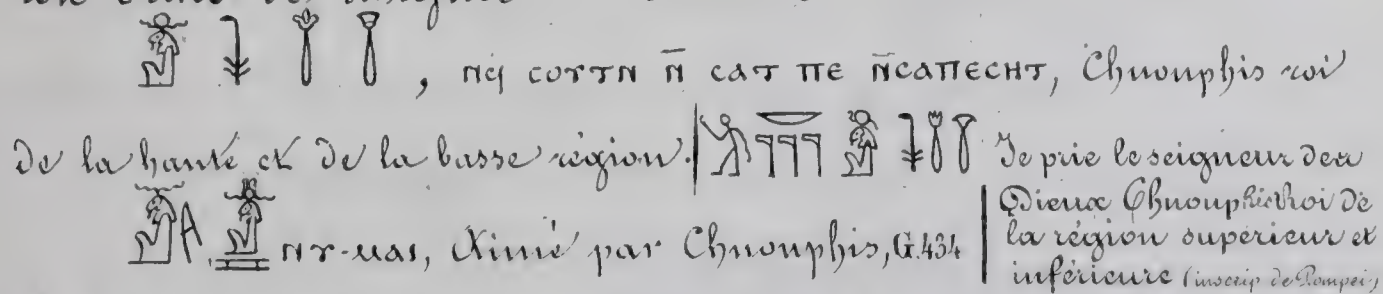 , ⲛϥ ⲥⲟⲩⲧⲛ ⲛ̄ ⲥⲁⲧ ⲡⲉ ⲛ̄ⲥⲁⲡⲉⲥⲏⲧ, Chnouphis roi
de la haute et de la basse région.
Je prie le seigneur des
Dieux Chnouphis roi de
la région supérieur et
inférieure (inscrip de Pompei)
ⲛⲩ-ⲙⲁⲓ, Aimé par Chnouphis, G. 434